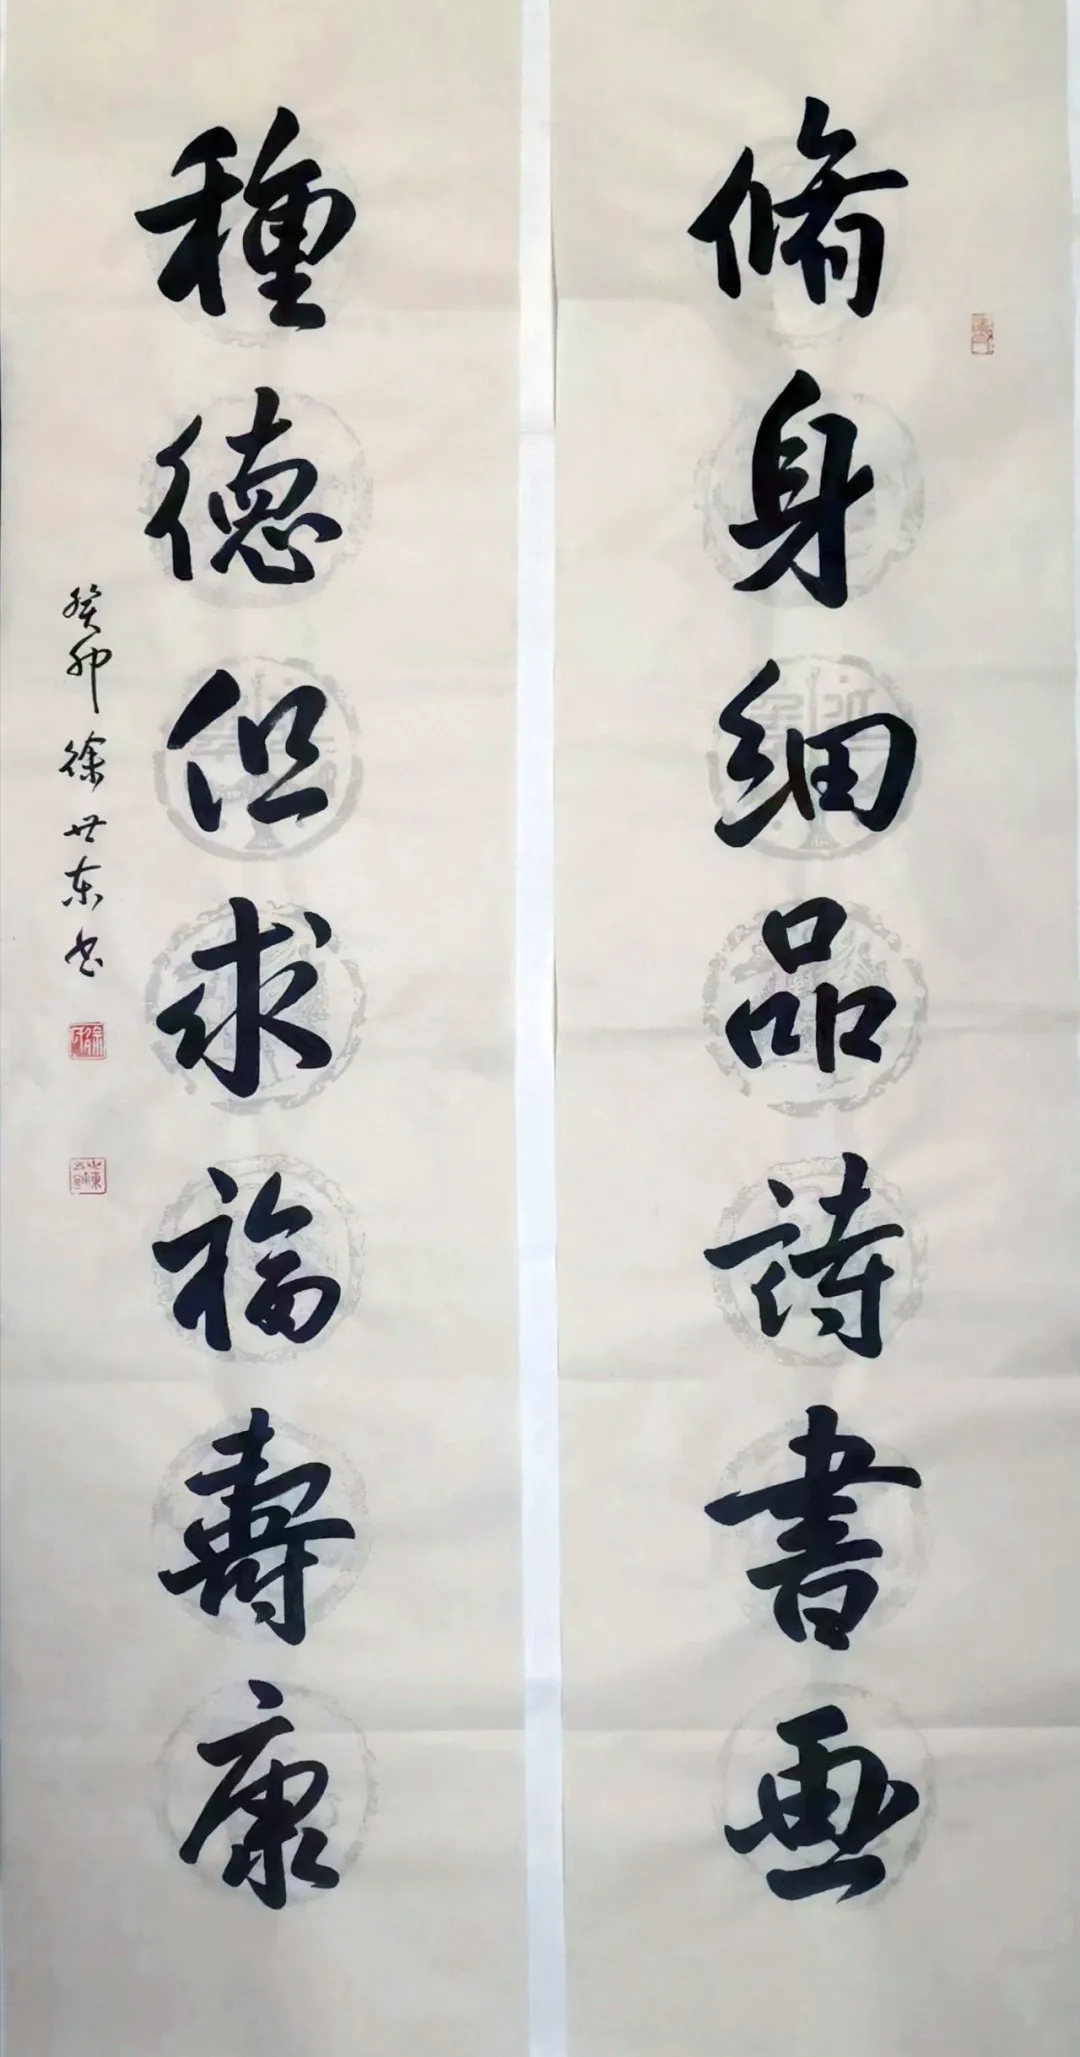 脩身細品詩書画
種德但求福壽康
癸卯 徐世东书